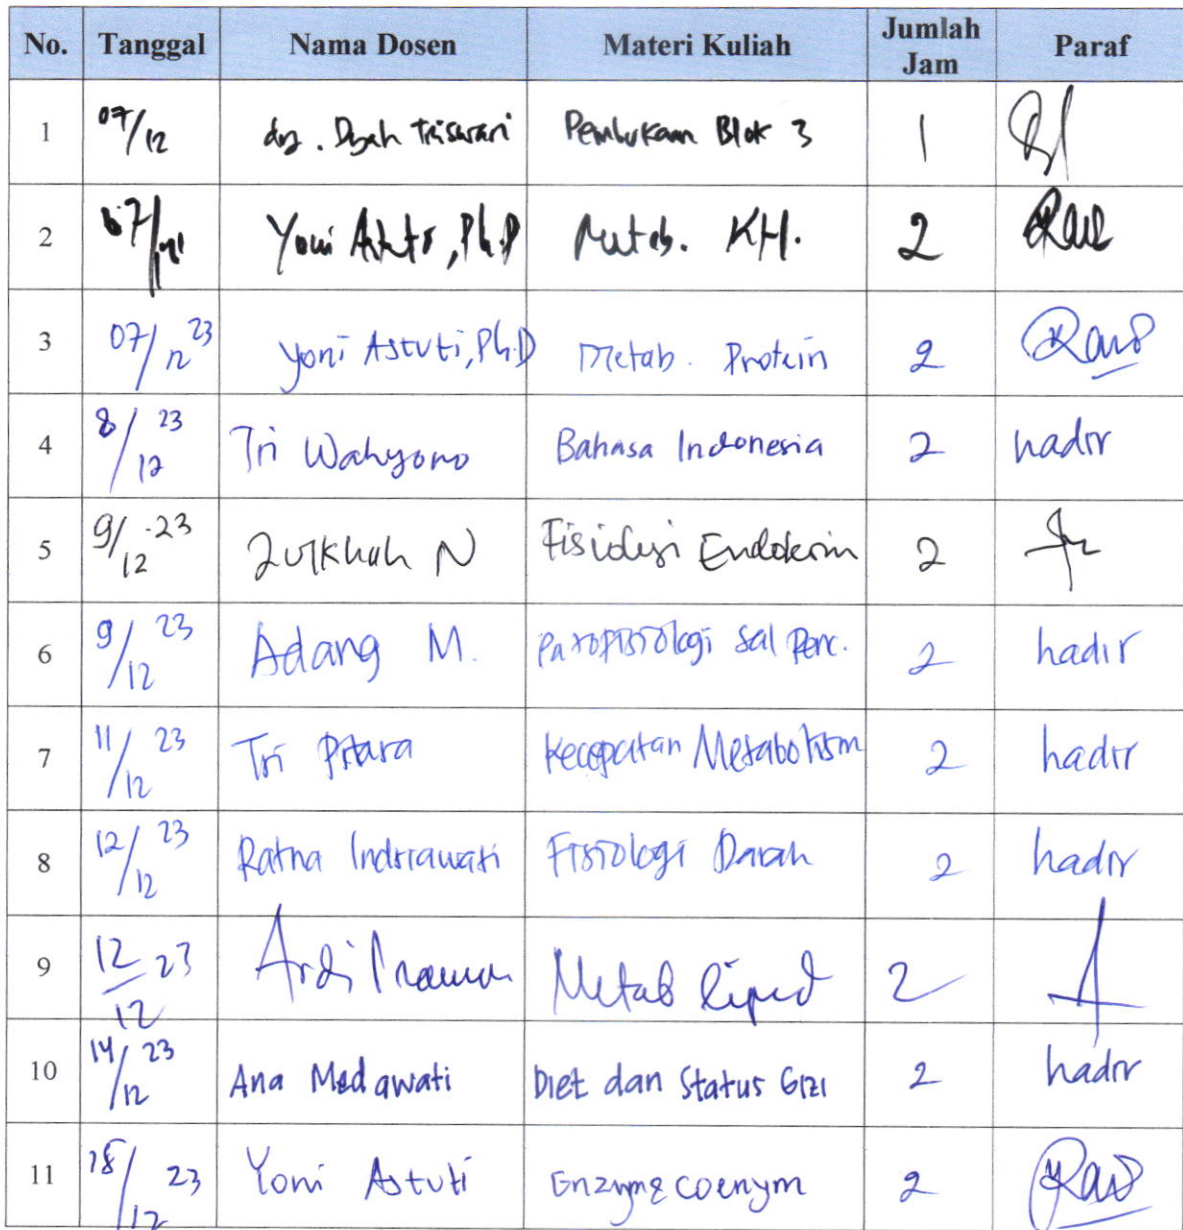 No. Tanggal Nama Dosen Materi Kuliah Jumlah Jam Paraf
1 07/12 drg. Dyah Triswari Pembukaan Blok 3 1
2 07/12 Yoni Astuti, Ph.D Metab. KH. 2
3 07/12 23 Yoni Astuti, Ph.D Metab. Protein 2
4 8/12 23 Tri Wahyono Bahasa Indonesia 2 hadir
5 9/12 -23 Zulkhah N Fisiologi Endokrin 2
6 9/12 23 Adang M. Patofisiologi Sal Penc. 2 hadir
7 11/12 23 Tri Pitara Kecepatan Metabolism 2 hadir
8 12/12 23 Ratna Indriawati Fisiologi Darah 2 hadir
9 12/12 23 Ardi Metab Lipid 2
10 14/12 23 Ana Medawati Diet dan Status Gizi 2 hadir
11 18/12 23 Yoni Astuti Enzyme coenym 2